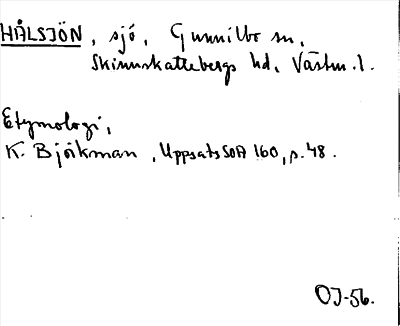 HÅLSJÖN, sjö, Gunnilbo sn,
Skinnskattebergs hd, Västm.l.
Etymologi,
K. Björkman, Uppsats SOA 160, s. 48.
OJ-56.